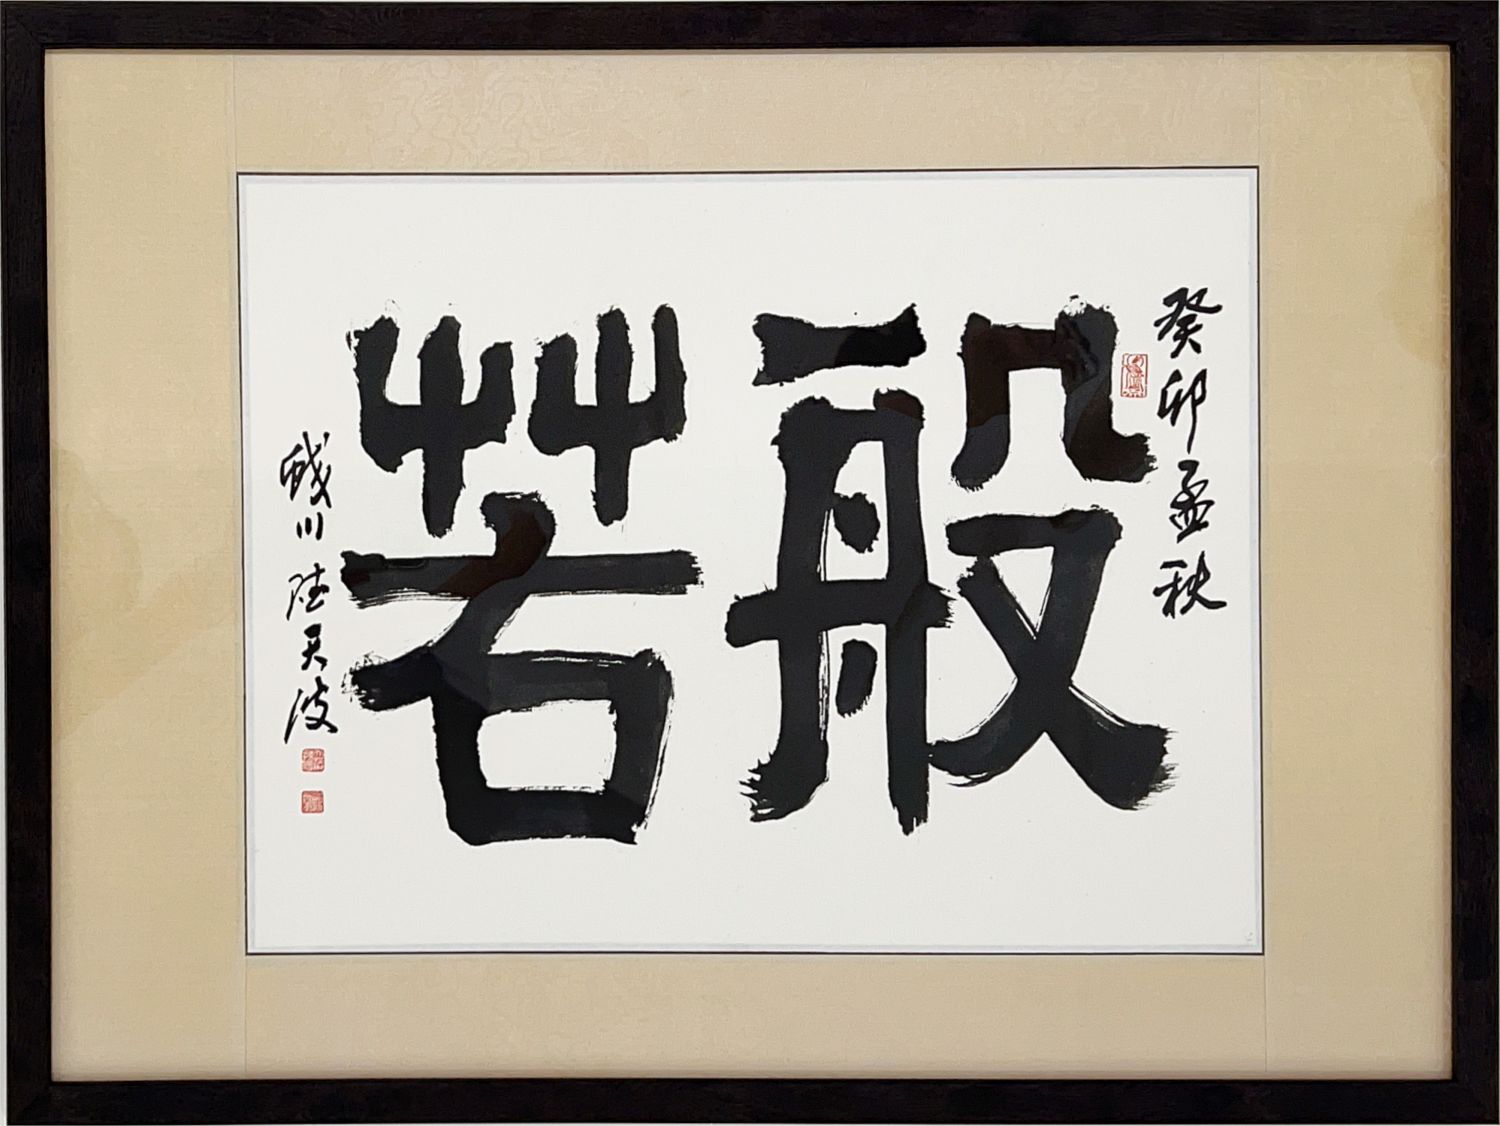 癸卯孟秋
般若
陆天波